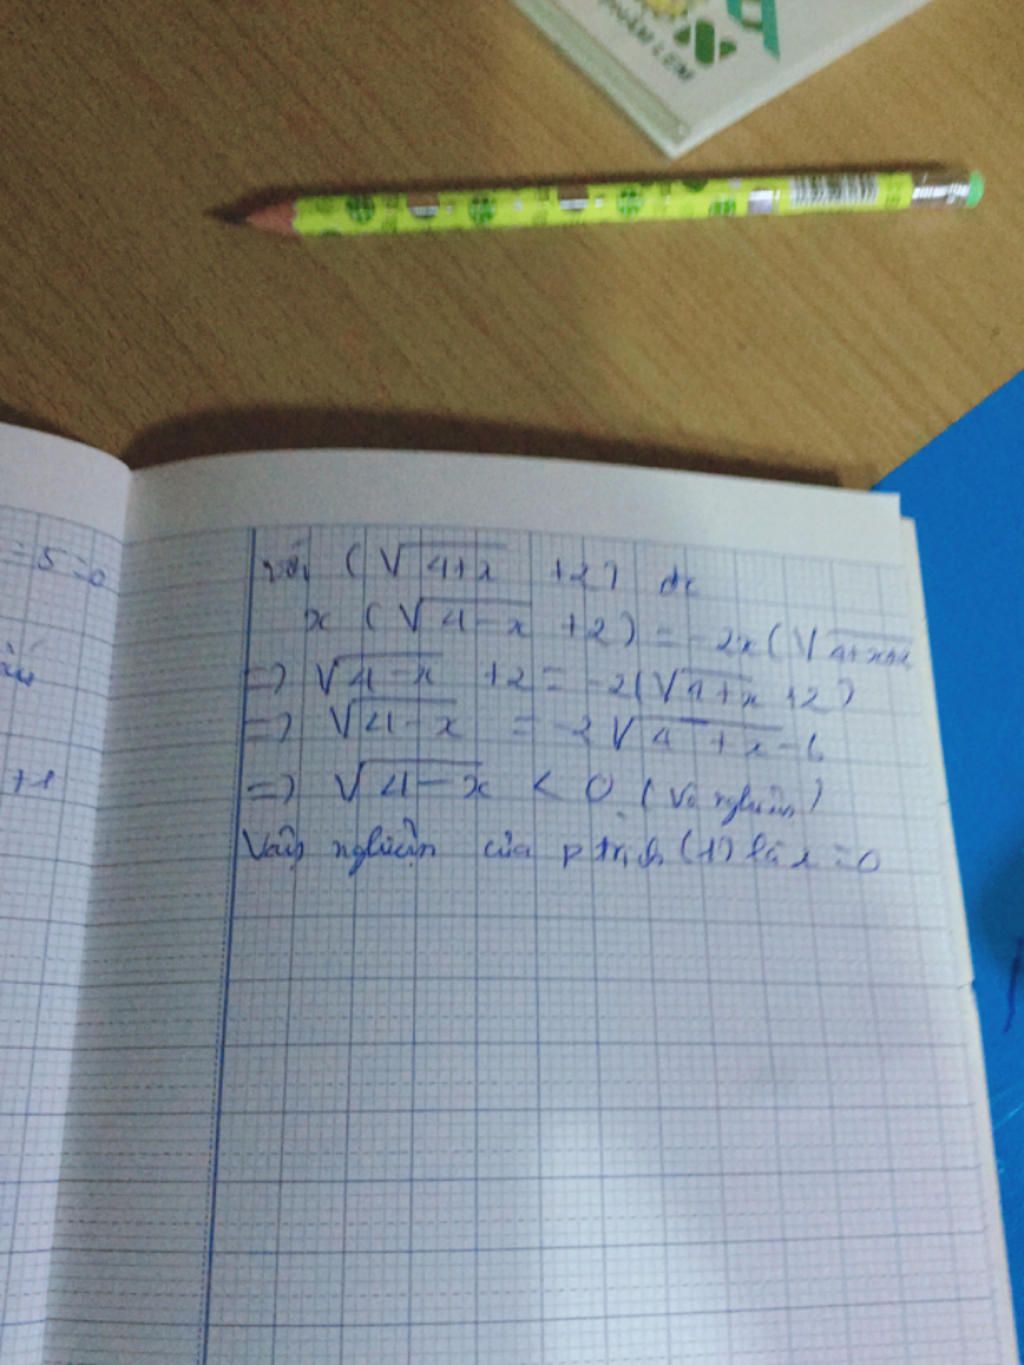 PHẨM LỚN
= 5 = 0
+1
với (√4+x +2) dc
x (√4-x +2) = -2x(√4+x+2
=) √4-x +2 = -2(√4+x +2)
=) √4-x = -2√4+x - 6
=) √4-x < 0 (Vô nghiệm)
Vậy nghiệm của ptrình (1) là x = 0